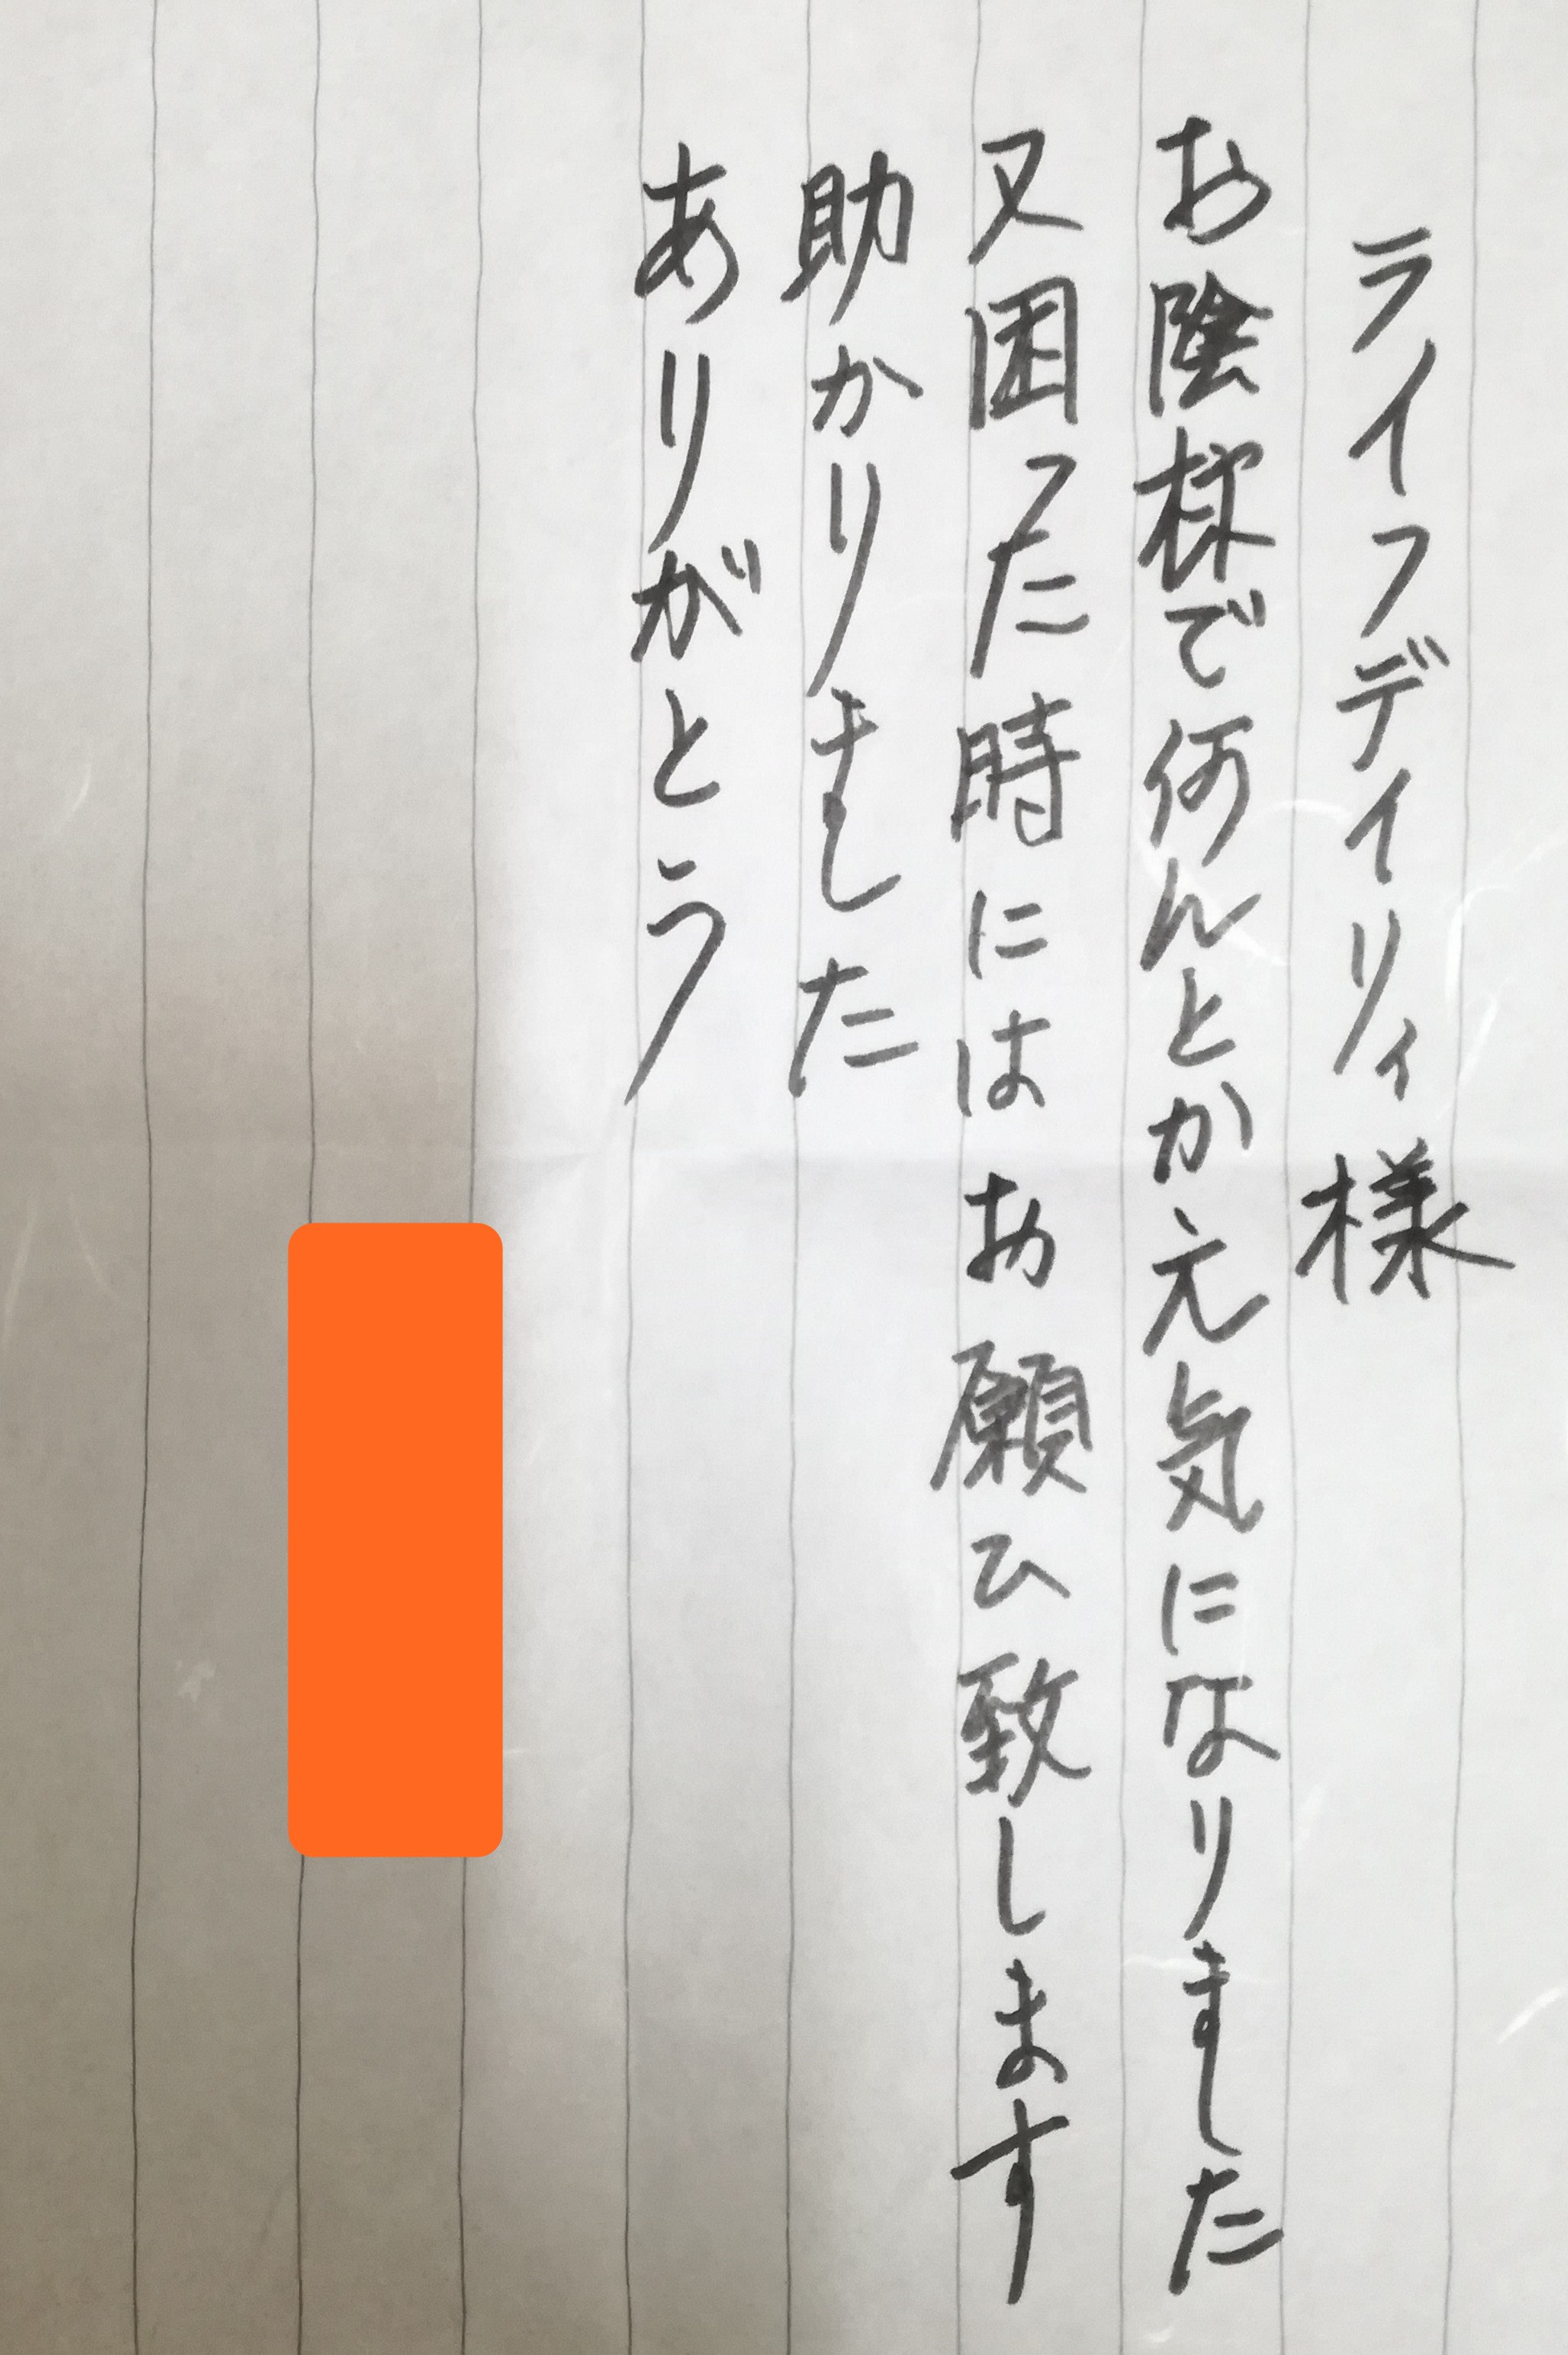 ライフデイリィ様
お陰様で何んとか元気になりました
又困った時にはお願ひ致します
助かりました
ありがとう